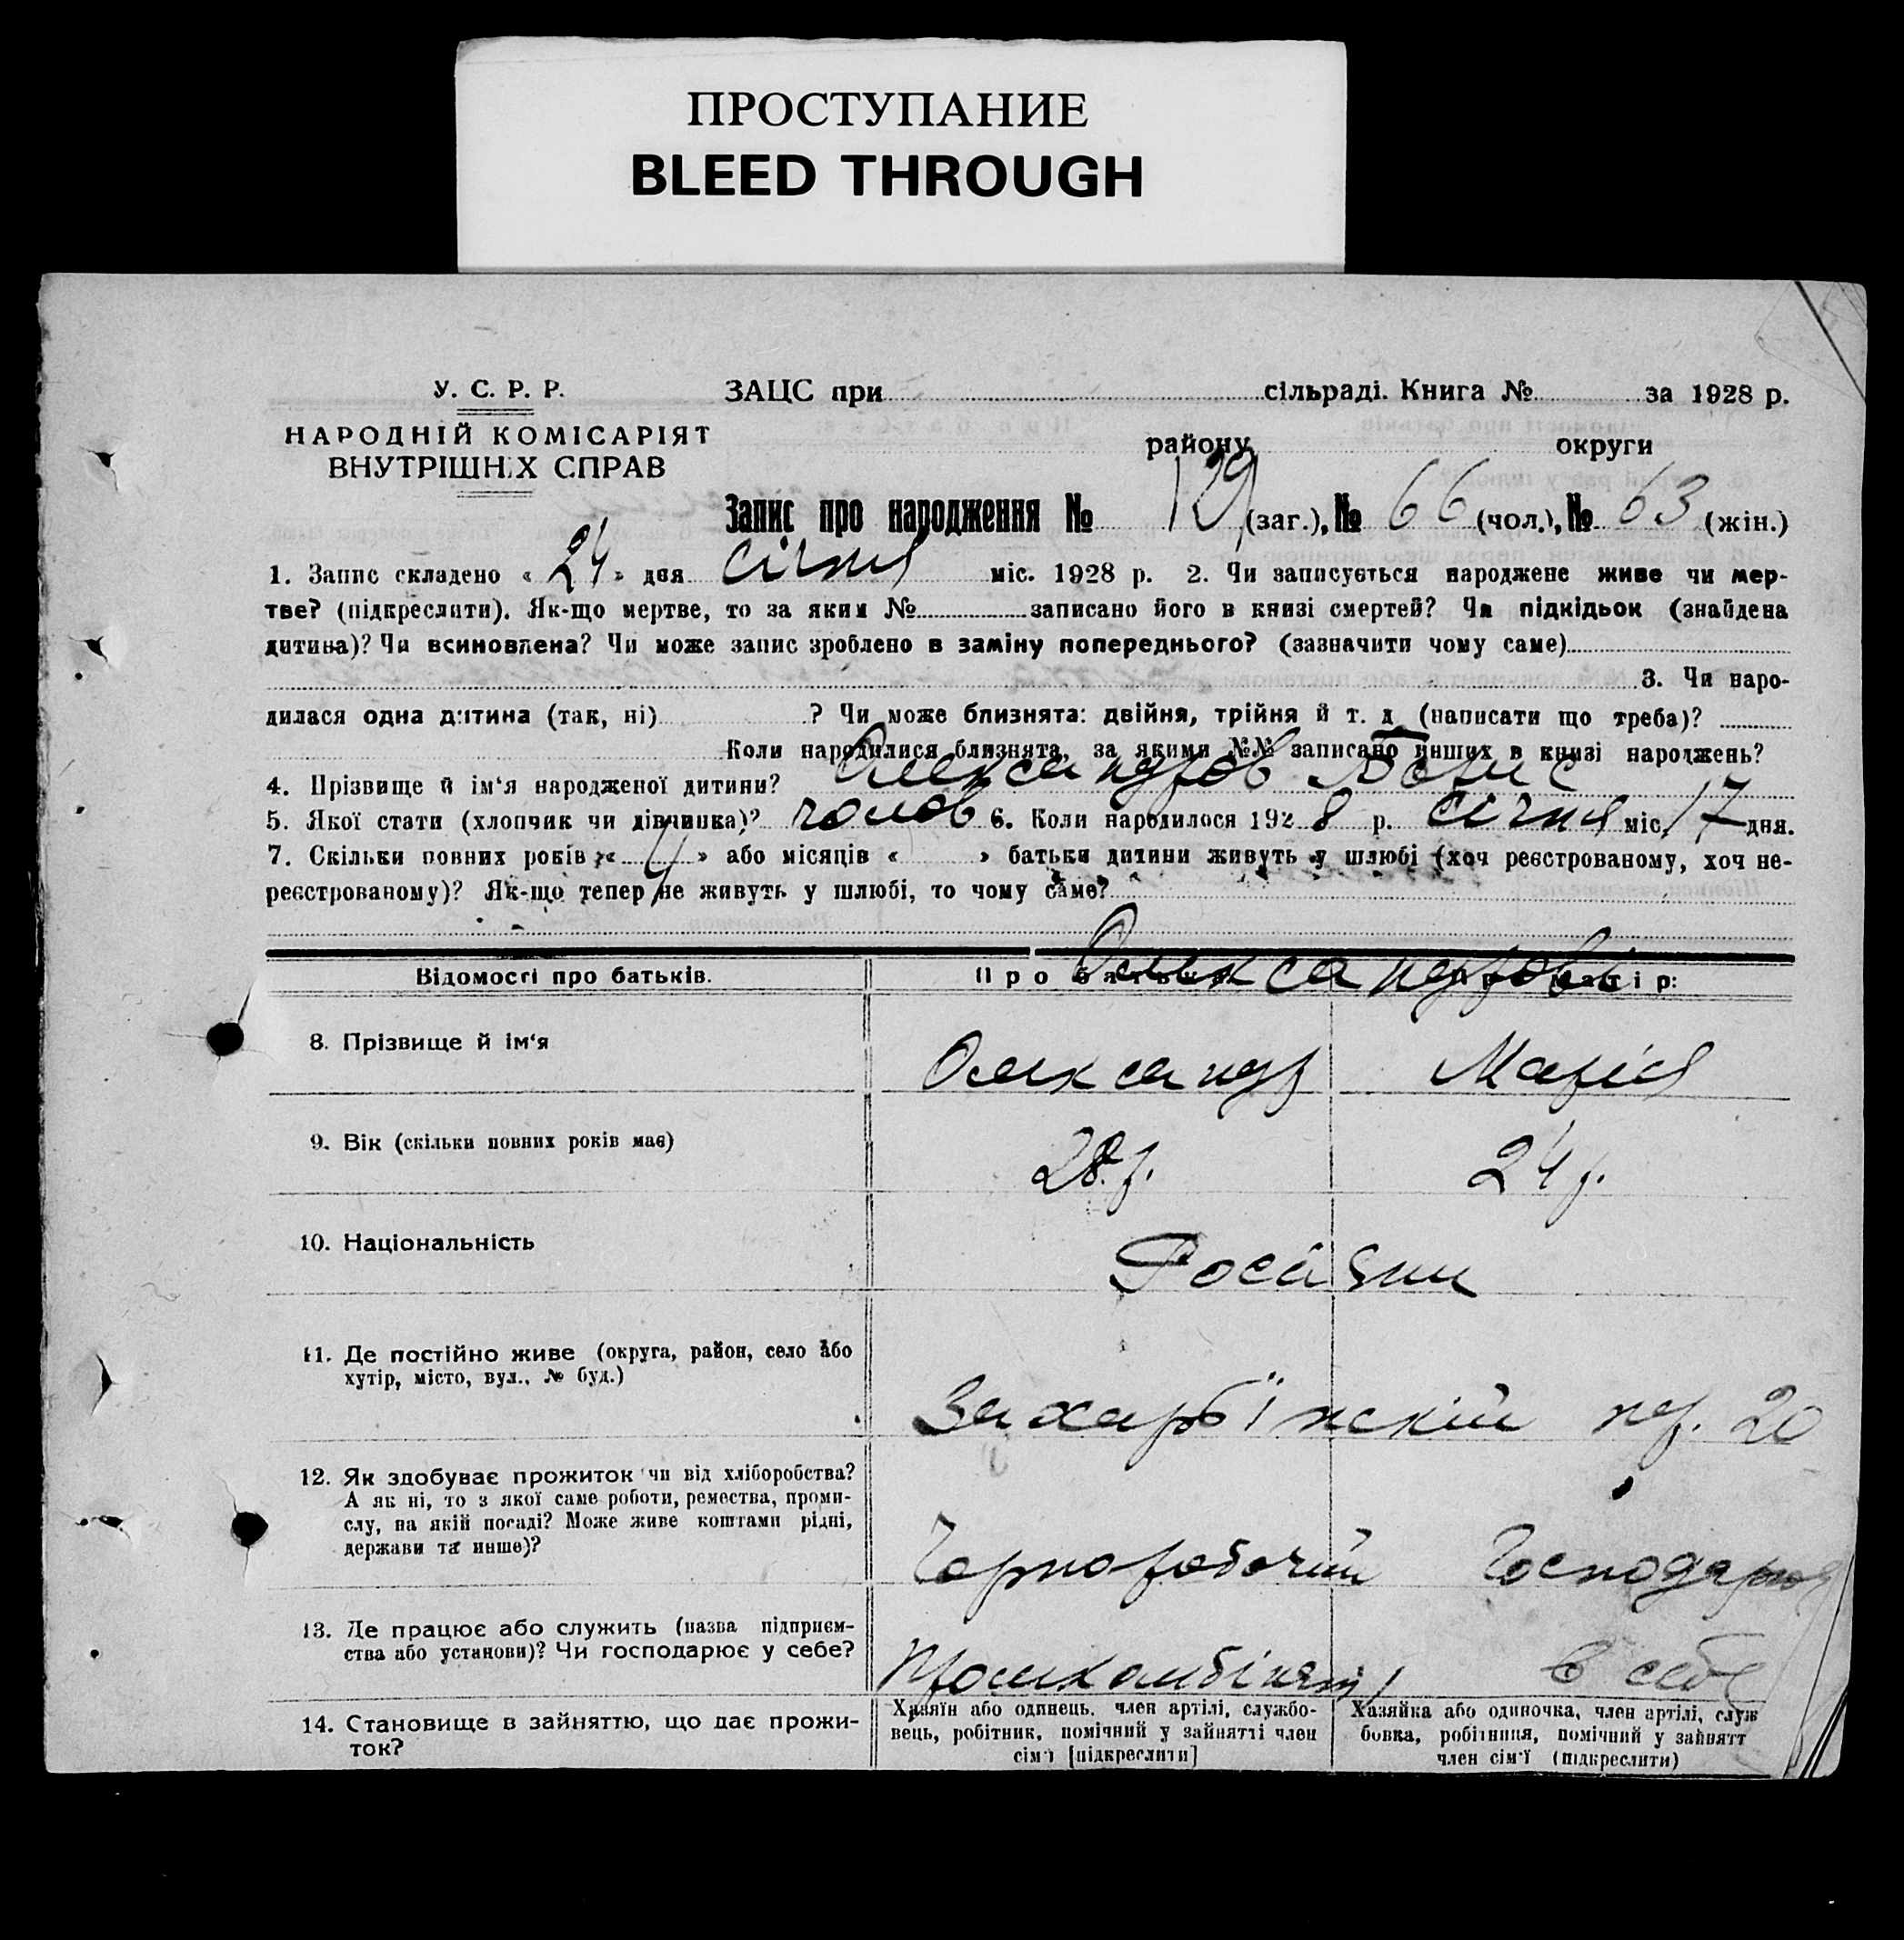 ПРОСТУПАНИЕ
BLEED THROUGH
У. С. Р. Р.
НАРОДНІЙ КОМІСАРІЯТ
ВНУТРІШНІХ СПРАВ
ЗАЦС при сільраді. Книга № за 1928 р.
району округи
Запис про народження № 129 (заг.), № 66 (чол.), № 63 (жін.)
1. Запис складено « 24 » дня січня міс. 1928 р. 2. Чи записується народжене живе чи мер-
тве? (підкреслити). Як-що мертве, то за яким № записано його в книзі смертей? Чи підкідьок (знайдена
дитина)? Чи всиновлена? Чи може запис зроблено в заміну попереднього? (зазначити чому саме)
3. Чи наро-
дилася одна дитина (так, ні) ? Чи може близнята: двійня, трійня й т. д (написати що треба)?
Коли народилися близнята, за якими №№ записано инших в книзі народжень?
4. Прізвище й ім'я народженої дитини? Олександров Борис
5. Якої стати (хлопчик чи дівчинка)? чолов 6. Коли народилося 1928 р. січня міс. 17 дня.
7. Скільки повних років « 4 » або місяців « » батьки дитини живуть у шлюбі (хоч реєстрованому, хоч не-
реєстрованому)? Як-що тепер не живуть у шлюбі, то чому саме?
Відомості про батьків. Про батька Про матір:
Олександрови
8. Прізвище й ім'я Олександр Марія
9. Вік (скільки повних років має) 28 р. 24 р.
10. Національність Росіяни
11. Де постійно живе (округа, район, село або
хутір, місто, вул., № буд.)
20
12. Як здобуває прожиток чи від хліборобства?
А як ні, то з якої саме роботи, ремества, проми-
слу, на якій посаді? Може живе коштами рідні,
держави та инше)?
Чорноробочий Господарює
13. Де працює або служить (назва підприєм-
ства або установи)? Чи господарює у себе?
в себе
14. Становище в зайняттю, що дає прожи-
ток?
Хазяїн або одинець, член артілі, службо-
вець, робітник, помічний у зайнятті член
сім'ї [підкреслити]
Хазяйка або одиночка, член артілі, служ
бовка, робітниця, помічний у зайнятт
член сім'ї (підкреслити)